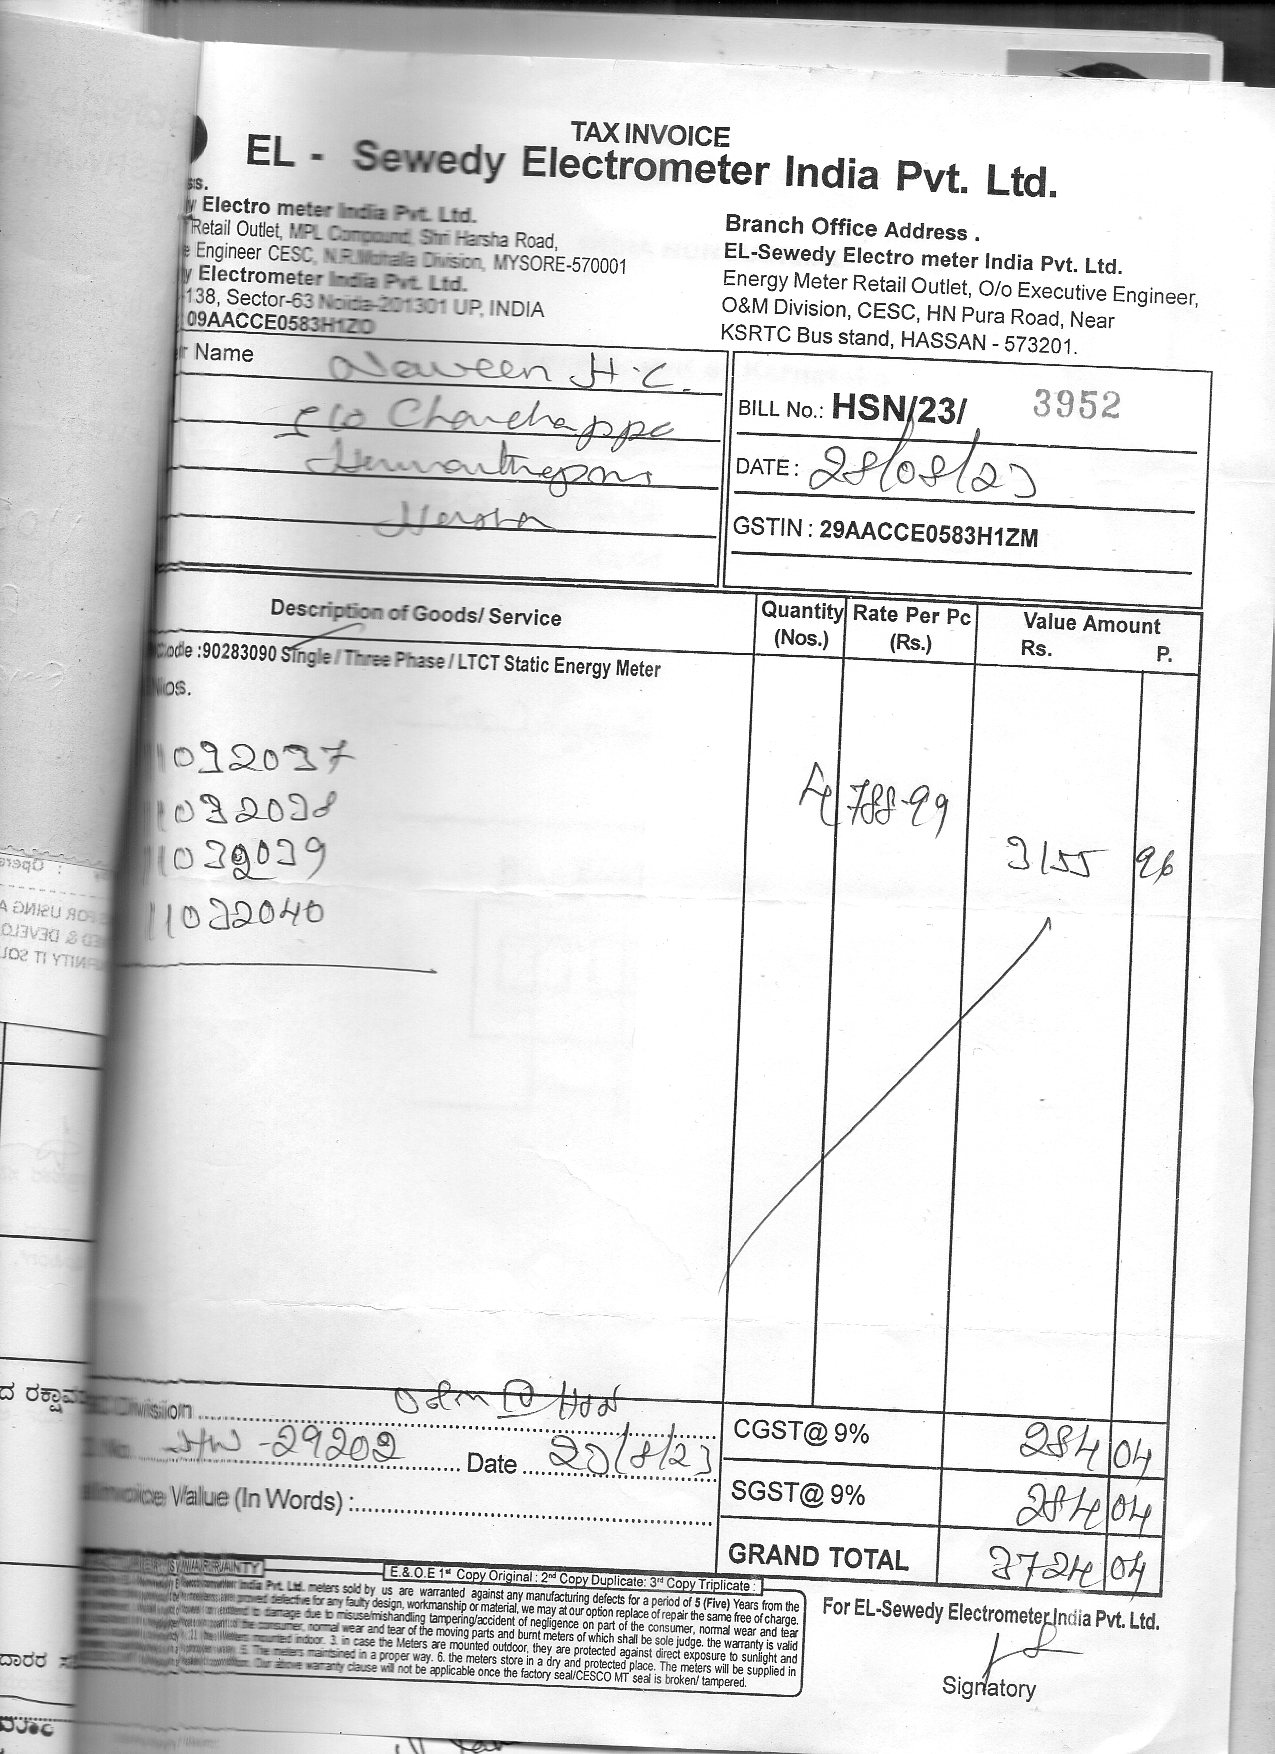 TAX INVOICE
EL - Sewedy Electrometer India Pvt. Ltd.
ss.
y Electro meter India Pvt. Ltd.
Retail Outlet, MPL Compound, Shri Harsha Road,
e Engineer CESC, N.R.Mohalla Division, MYSORE-570001
y Electrometer India Pvt. Ltd.
138, Sector-63 Noida-201301 UP, INDIA
09AACCE0583H1ZO
Branch Office Address .
EL-Sewedy Electro meter India Pvt. Ltd.
Energy Meter Retail Outlet, O/o Executive Engineer,
O&M Division, CESC, HN Pura Road, Near
KSRTC Bus stand, HASSAN - 573201.
r Name Naveen H.C.
Chandrappa
BILL No.: HSN/23/ 3952
DATE : 28/08/23
GSTIN : 29AACCE0583H1ZM
Description of Goods/ Service
Quantity (Nos.)
Rate Per Pc (Rs.)
Value Amount
Rs. P.
Code :90283090 Single / Three Phase / LTCT Static Energy Meter
Nos.
11032037
11032038
11032039
11032040
4 788-99
3155 96
Division
No. HW -29202 Date 23/8/23
Invoice Value (In Words) :
CGST@ 9% 284 04
SGST@ 9% 284 04
GRAND TOTAL 3724 04
E.& O.E 1st Copy Original : 2nd Copy Duplicate: 3rd Copy Triplicate :
WARRANTY
India Pvt. Ltd. meters sold by us are warranted against any manufacturing defects for a period of 5 (Five) Years from the
defective for any faulty design, workmanship or material, we may at our option replace of repair the same free of charge.
to damage due to misuse/mishandling tampering/accident of negligence on part of the consumer, normal wear and tear
wear and tear of the moving parts and burnt meters of which shall be sole judge. the warranty is valid
mounted indoor. 3. in case the Meters are mounted outdoor, they are protected against direct exposure to sunlight and
5. The meters maintained in a proper way. 6. the meters store in a dry and protected place. The meters will be supplied in
Our above warranty clause will not be applicable once the factory seal/CESCO MT seal is broken/ tampered.
For EL-Sewedy Electrometer India Pvt. Ltd.
Signatory